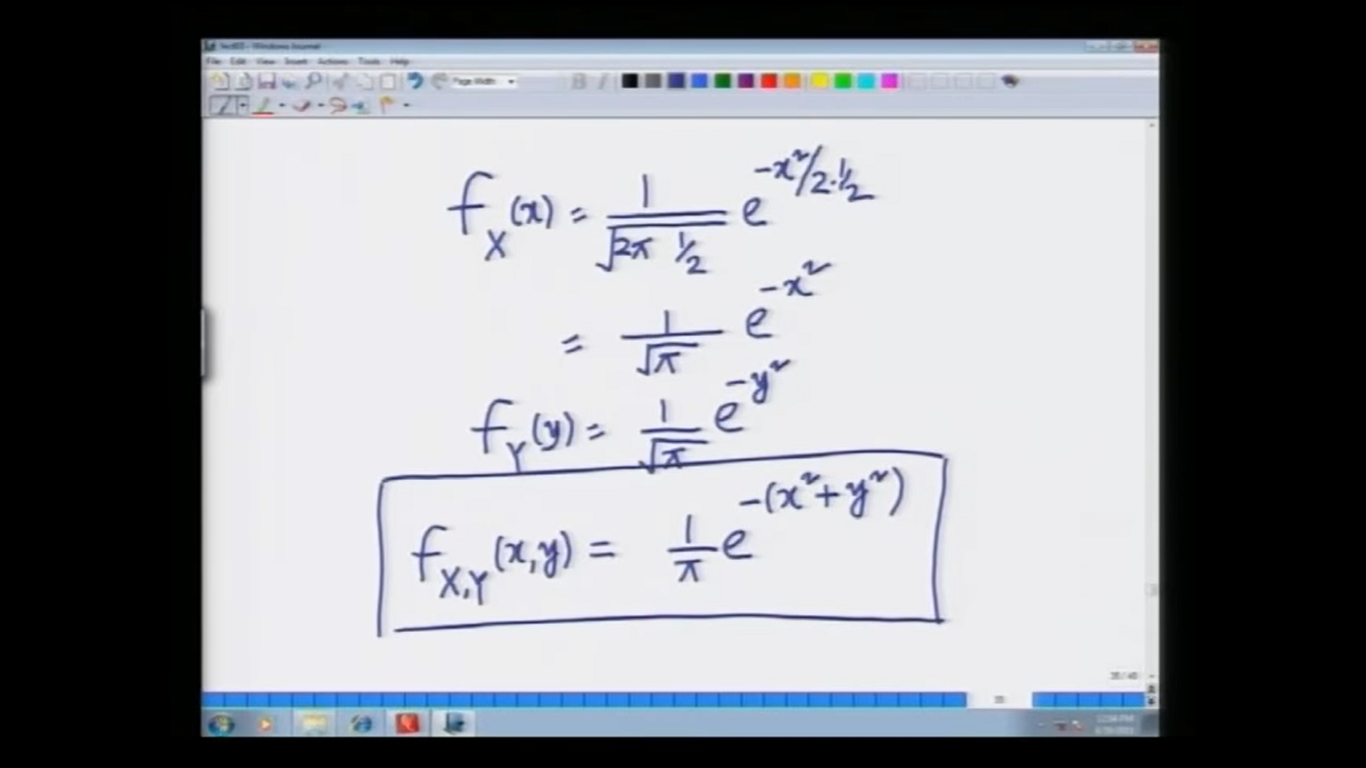 lect03 - Windows Journal
File Edit View Insert Actions Tools Help
Page Width
B I
f_X(x) = 1/√(2π 1/2) e^(-x²/2·1/2)
= 1/√π e^(-x²)
f_Y(y) = 1/√π e^(-y²)
f_X,Y(x,y) = 1/π e^(-(x²+y²))
35